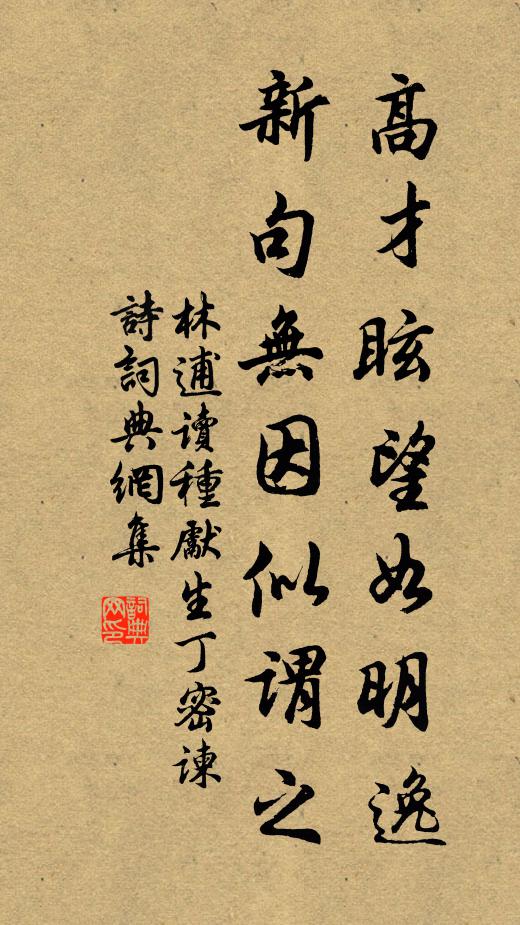 高才眩望如明逸
新句無因似謂之
林逋讀種獻生丁密諫
詩詞典網集
詞典网印